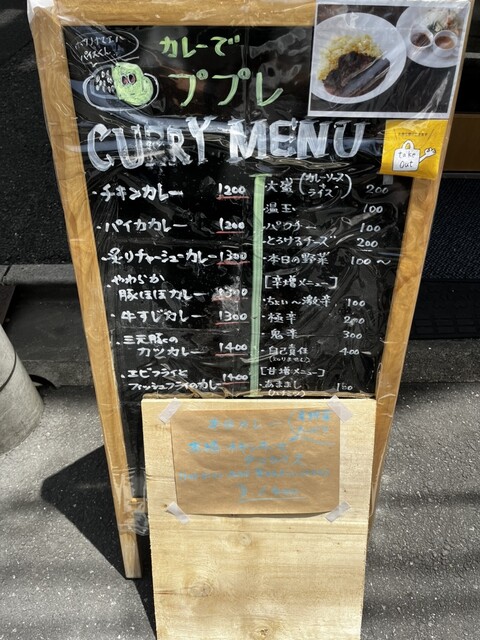 パイスくん
カレーで
ププレ
CURRY MENU
take
out
・チキンカレー 1200
・パイカカレー 1200
・炙りチャーシューカレー 1300
・やわらか
豚ほほカレー
・牛すじカレー 1300
・三元豚の
カツカレー 1400
・エビフライと
フィッシュフライのカレー 1400
・大盛(カレーソース
ライス) 200
・温玉 100
・パクチー 100
・とろけるチーズ 200
・本日の野菜 100〜
[辛増メニュー]
・ちょい〜激辛 100
・極辛 200
・鬼辛 300
・自己責任 400〜
[甘増メニュー]
・あままし
(ハチミツ) 100